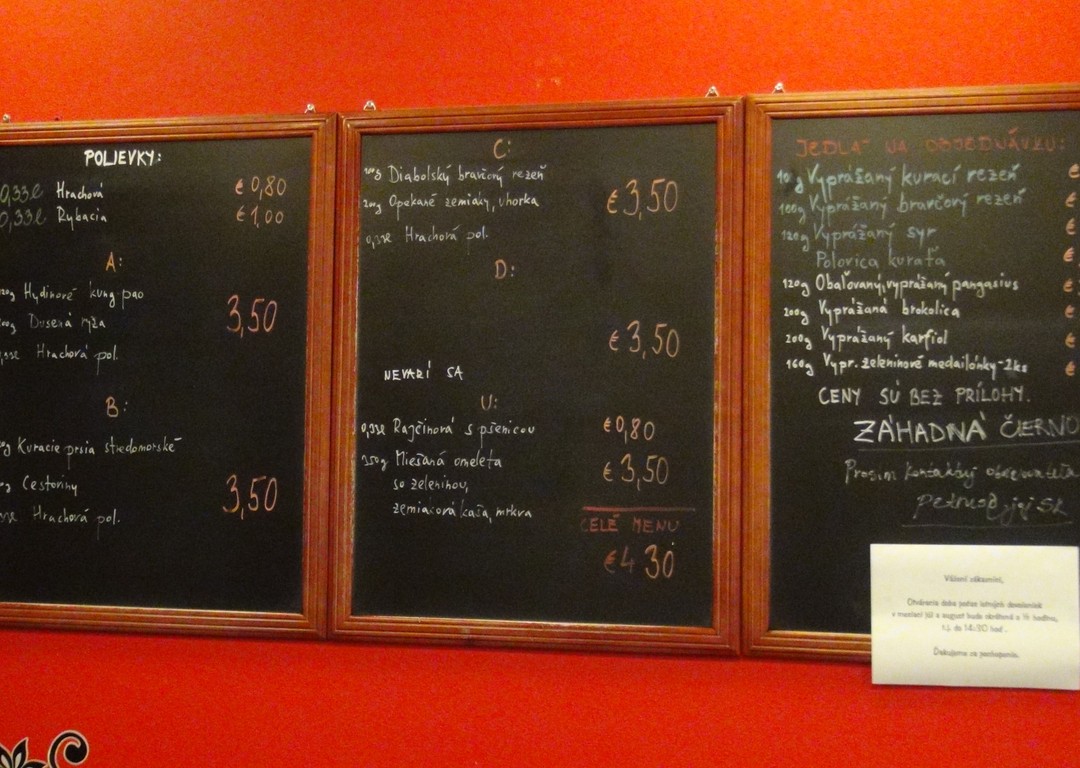 POLIEVKY:
0,33l Hrachová € 0,80
0,33l Rybacia € 1,00
A:
Hydinové kung pao
Dusená ryža 3,50
Hrachová pol.
B:
Kuracie prsia stredomorské
Cestoviny 3,50
Hrachová pol.
C:
100g Diabolský bravčový rezeň
200g Opekané zemiaky, uhorka €3,50
0,33l Hrachová pol.
D:
€3,50
NEVARÍ SA
U:
0,33l Rajčinová s pšenicou €0,80
350g Miešaná omeleta €3,50
so zeleninou,
zemiaková kaša, mrkva
CELÉ MENU
€4 30
JEDLÁ NA OBJEDNÁVKU:
100g Vyprážaný kurací rezeň €
100g Vyprážaný bravčový rezeň €
120g Vyprážaný syr €
Polovica kuraťa €
120g Obaľovaný, vyprážaný pangasius €
200g Vyprážaná brokolica €
200g Vyprážaný karfiol €
160g Vypr. zeleninové medailónky-2ks €
CENY SÚ BEZ PRÍLOHY.
ZÁHADNÁ ČIERNO
Prosím
Vážení zákazníci,
Otváracia doba počas letných dovoleniek
v mesiaci júl a august bude skrátená o ½ hodinu,
t.j. do 14:30 hod.
Ďakujeme za pochopenie.